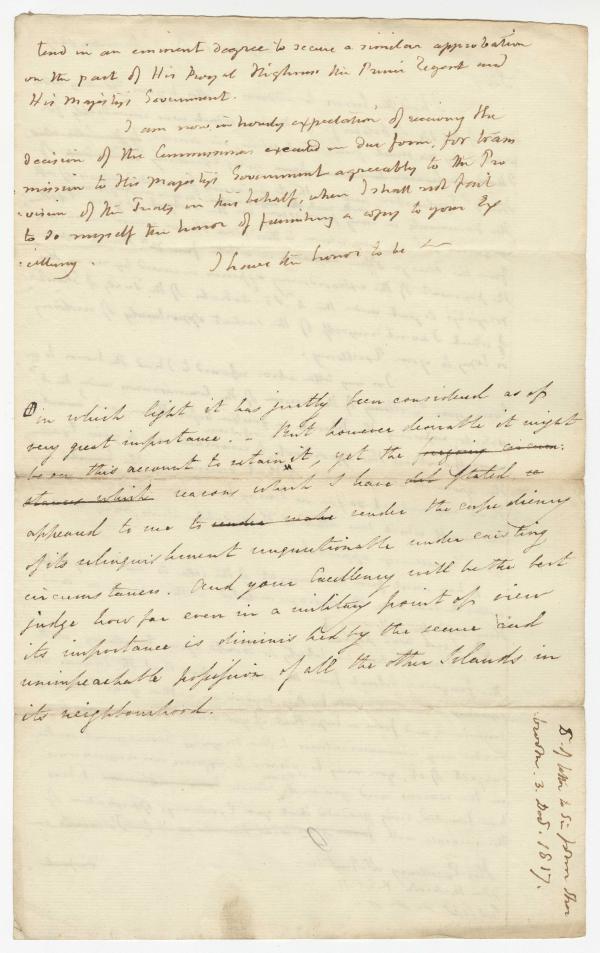 tend in an eminent degree to secure a similar approbation
on the part of His Royal Highness the Prince Regent and
His Majestys Government.
I am now in hourly expectation of receiving the
decision of the Commissioners executed in due form, for trans
mission to His Majestys Government agreeably to the Pro
vision of the Treaty in this behalf, when I shall not fail
to do myself the honor of furnishing a copy to your Ex
cellency.
I have the honor to be
in which light it has justly been considered as of
very great importance. - But however desirable it might
be on this account to retain it, yet the foregoing circum-
stances which reasons which I have stated
appeared to me to render make render the expediency
of its relinquishment unquestionable under existing
circumstances. And your Excellency will be the best
judge how far even in a military point of view
its importance is diminished by the secure and
unimpeachable possession of all the other Islands in
its neighbourhood.
Dt. of letter to Sir John Sher
brooke. 3. Decr. 1817.